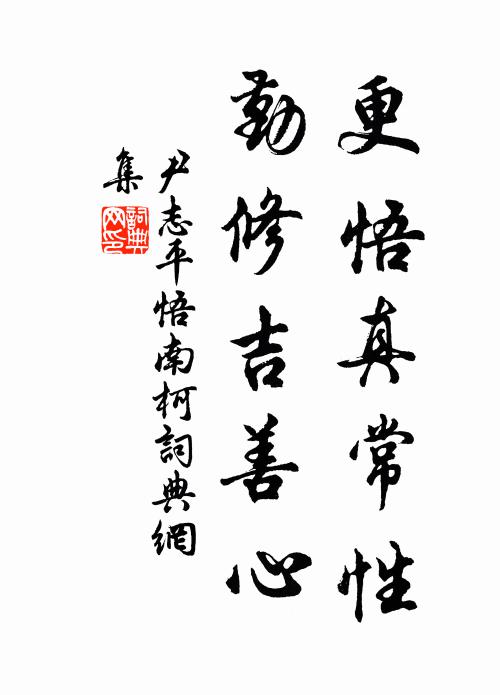 更悟真常性
勤修吉善心
尹志平悟南柯詞典網
集
詞典網印